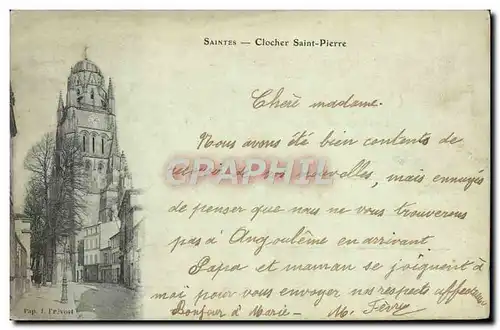 SAINTES — Clocher Saint-Pierre
Cherè madame.
Nous avons été bien contents de
CPARAMA.COM
recevoir de vos nouvelles, mais ennuyés
de penser que nous ne vous trouverons
pas à Angoulême en arrivant.
Papa et maman se joignent à
moi pour vous envoyer nos respects affectueux
Bonjour à Marie — M. Févre
Pap. J. Prévost